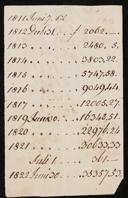 1811 June 7. 62
1812 Juli 31 . . f 2062. —
1813 . . . . 2480. 5.
1814 . . . . 3803.22.
1815 . . . . 5747.58.
1816 . . . . 9049.44.
1817 . . . . 12005.27
1819 Juni 30. . 16342.51.
1820 . . . . 22976.24
1821 . . . . 30633.33
Juli 1 . . 361. —
1822 Juni 30. . . 35357.53.